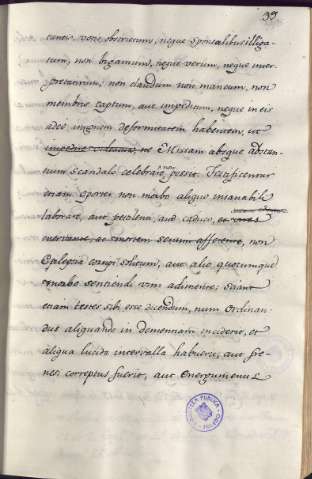 39
voto obstrictum, neque sponsalibus illiga-
tum, non bigamum, neque verum, neque inter-
pretativum; non claudum non mancum, non
membris captum, aut impeditum, neque in eis
adeò insignem deformitatem habentem, ut
impedire ne Missam absque adstan-
tium scandalo celebrare non possit. Testificentur
etiam oportet non morbo aliquo insanabili
laborare, aut pestilenti, aut caduco,
ac mortem secum afferente, non
Epilepsia corripi solitum, aut alio quocumque
morbo sentiendi vim adimente: Sciant
etiam testes sibi esse dicendum, num Ordinan-
dus aliquando in dementiam inciderit, et
aliqua lucida intervalla habuerit, aut
correptus fuerit, aut Energumenus